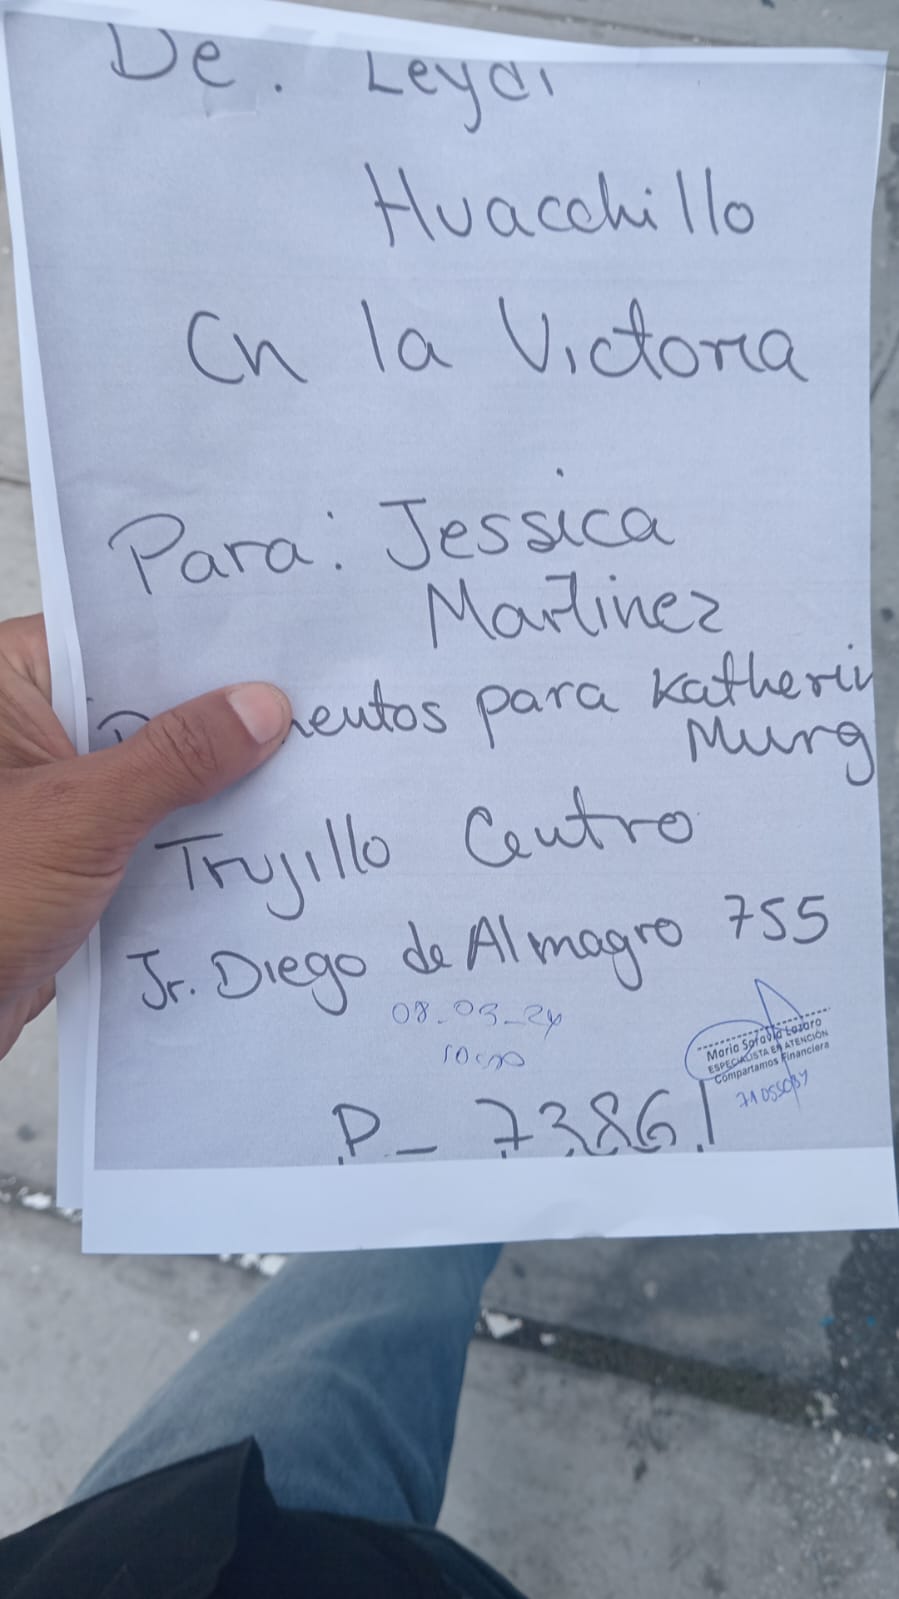 De. Leydi
Huacchillo
Cn la Victoria
Para: Jessica
Martinez
para Katherin
Murg
Trujillo Centro
Jr. Diego de Almagro 755
08-03-24
Maria Sofavia Lazaro
ESPECIALISTA EN ATENCIÓN
Compartamos Financiera
P- 73861